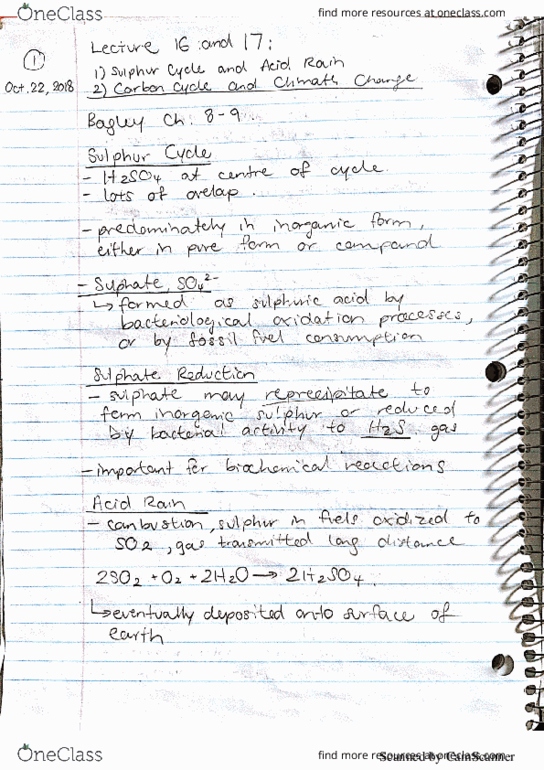 OneClass
find more resources at oneclass.com
1
Oct. 22, 2018
Lecture 16 and 17:
1) Sulphur Cycle and Acid Rain
2) Carbon Cycle and Climate Change
Bagley Ch. 8-9
Sulphur Cycle
- H2SO4 at centre of cycle
- lots of ovelap.
- predominately in inorganic form,
either in pure form or compound
- Suphate, SO4 2-
↳ formed as sulphuric acid by
bacteriological oxidation processes,
or by fossil fuel consumption
Sulphate Reduction
- sulphate may reprecipitate to
form inorganic sulphur or reduced
by bacterial activity to H2S gas
- important for biochemical reactions
Acid Rain
- combustion, sulphur in fuels oxidized to
SO2, gas transmitted long distance
2SO2 + O2 + 2H2O → 2H2SO4.
↳ eventually deposited onto surface of
earth
OneClass
find more resources at oneclass.com
Scanned by CamScanner